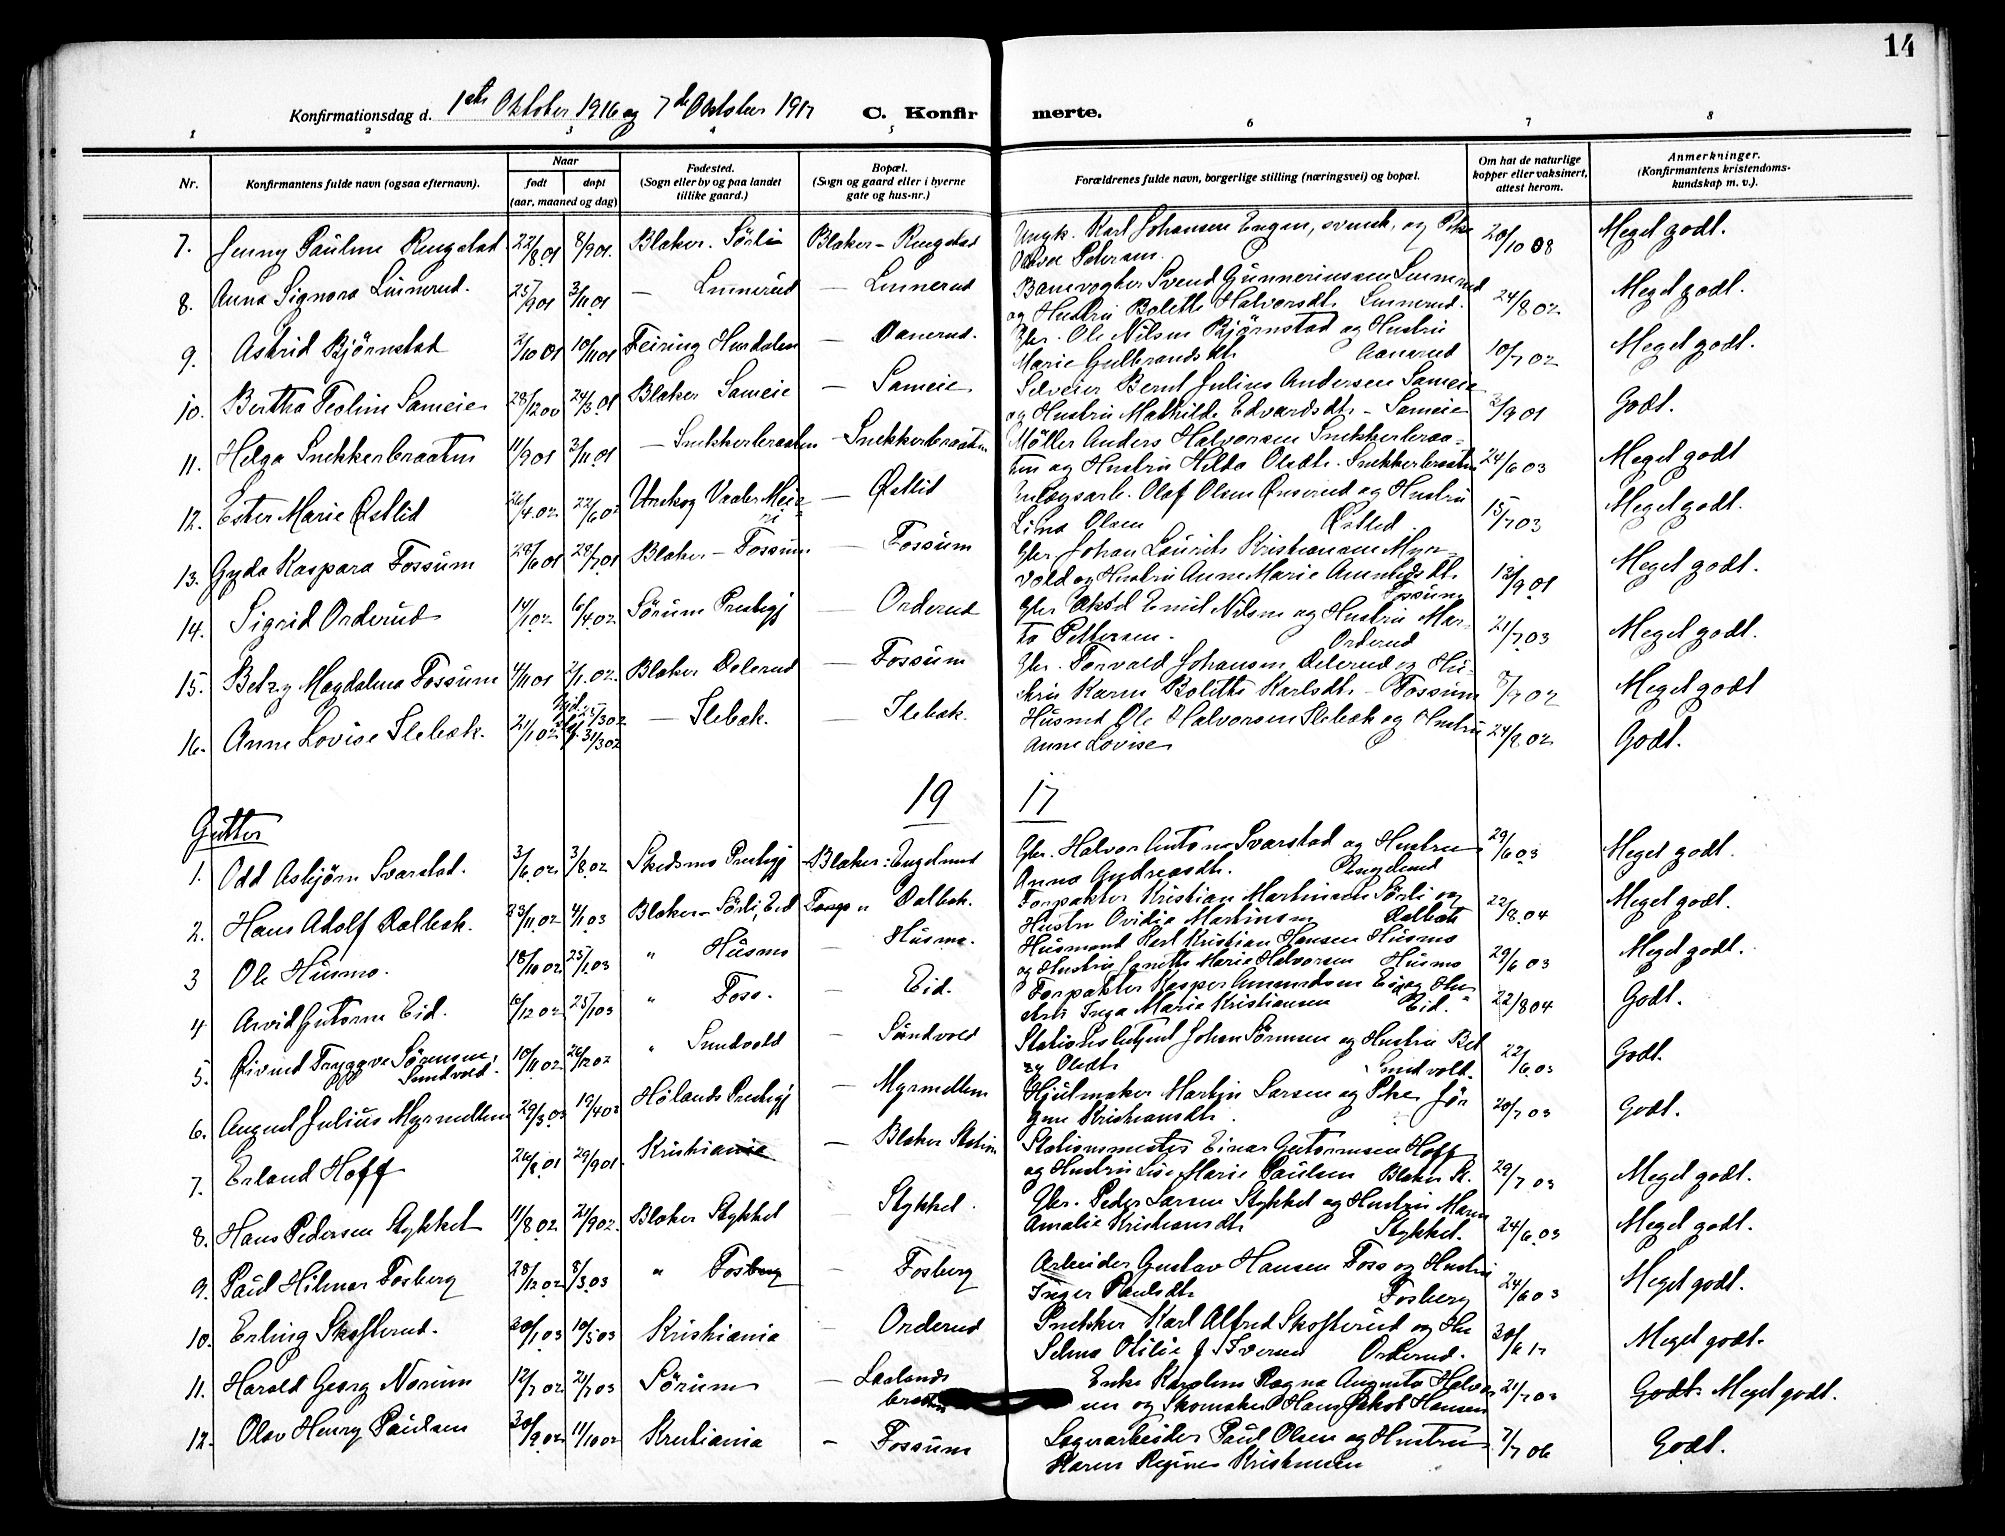 14
Konfirmationsdag d. 1ste Oktober 1916 og 7de Oktober 1917 C. Konfirmerte.
1 2 3 4 5 6 7 8
Nr. Konfirmantens fulde navn (ogsaa efternavn). Naar født døpt (aar, maaned og dag) Fødested. (Sogn eller by og paa landet tillike gaard.) Bopæl. (Sogn og gaard eller i byerne gate og hus-nr.) Forældrenes fulde navn, borgerlige stilling (næringsvei) og bopæl. Om hat de naturlige kopper eller vaksinert, attest herom. Anmerkninger. (Konfirmantens kristendomskundskap m. v.).
7. Jenny Pauline Ringstad 22/8 01 8/9 01. Blaker. Sørli Blaker – Ringstad Ungk. Karl Johansen Engen, svensk, og Pike 20/10 08 Meget godt.
Petersen.
8. Anna Signora Linnerud. 25/9 01 3/11 01 — Linnerud — Linnerud Banevogter Svend Gunneriussen Linnerud 24/8 02 Meget godt.
og Hustru Bolette Halvorsdt. Linnerud.
9. Astrid Bjørnstad 2/10 01 10/11 01 Feiring Hurdalen — Aanerud. Gbr. Ole Nilsen Bjørnstad og Hustru 10/7 02 Meget godt.
Marie Gulbrandsdt. Aanerud
10. Bertha Teoline Sameie 28/12 00 24/3 01 Blaker Sameie — Sameie Selveier Bernt Julius Andersen Sameie 3/9 01 Godt.
og Hustru Mathilde Edvardsdt. – Sameie
11. Helga Snekkerbraaten 11/9 01 3/11 01 — Snekkerbraaten – Snekkerbraaten Møller Anders Halvorsen Snekkerbraa- 24/6 03 Meget godt
ten og Hustru Hilda Olsdt. Snekkerbraaten
12. Ester Marie Østlid 26/4 02 22/6 02 Urskog — Østlid Olaf Olsen og Hustru 15/7 03 Meget godt.
Lina Olsen Østlid.
13. Gyda Kaspara Fossum 28/6 01 28/7 01 Blaker – Fossum — Fossum Gbr. Johan Laurits Kristiansen Myr- 13/9 01 Meget godt.
vold og Hustru Anne Marie Amundsdt. Fossum
14. Sigrid Orderud 14/1 02 6/4 02 Sørum Prestegj — Orderud Gbr. Aksel Emil Nilsen og Hustru Mar- 21/7 03 Meget godt.
ta Pettersen. Orderud
15. Betzy Magdalena Fossum 4/11 01 2/1 02. Blaker Delerud — Fossum Gbr. Torvald Johansen Delerud og Hu- 8/7 02 Meget godt
stru Karen Bolette Karlsdt. – Fossum
16. Anne Lovise Slebæk. 21/1 02 31/3 02 — Slebæk. — Slebæk. Husmd Ole Halvorsen Slebæk og Hustru 24/8 02 Godt.
Anne Lovise
1917
Gutter
1. Odd Asbjørn Svarstad. 3/6 02 3/8 02 Skedsmo Prestegj – Blaker: Engelsrud Gbr. Halvor Anton Svarstad og Hustru 29/6 03 Meget godt.
Anna Andreasdt. Engelsrud
2. Hans Adolf Dalbæk. 23/11 02 4/1 03 Blaker – Sørli, Eid " Dalbæk. Forpakter Kristian Martinsen Sørli og 22/8 04 Meget godt.
Hustru Ovidia Martinsen Dalbæk
3 Ole Husmo. 18/10 02 25/1 03 " Husmo — Husmo. Husmand Karl Kristian Hansen Husmo 29/6 03 Meget godt.
og Hustru Marie Halvorsen Husmo
4 Arvid Gutorm Eid. 6/12 02 25/1 03 " Foss. — Eid. Forpakter Kasper Amundsen Eid og Hu- 22/8 04 Godt.
stru Inga Marie Kristiansen Eid.
5. Øivind Tryggve Sørensen 10/11 02 26/12 02 " Sundvold — Sundvold Stationsbetjent Johan Sørensen og Hustru Bet 22/6 03 Godt.
Sundvold. zy Olsdt. Sundvold.
6. August Julius Myrmellem 29/3 03 19/4 03 Hølands Prestegj — Myrmellem Hjulmaker Martin Larsen og Pike Jør 20/7 03 Godt.
gine Kristiansdt.
7. Erland Hoff 26/8 01 29/9 01. Kristiania — Blaker Station Stationsmester Einar Gutormsen Hoff 29/7 03 Meget godt.
og Hustru Lise Marie Paulsen Blaker St.
8. Hans Pedersen Stykket 11/8 02 21/9 02. Blaker Stykket Stykket. Gbr. Peder Larsen Stykket og Hustru Maren 24/6 03 Meget godt.
Amalie Kristiansdt. Stykket.
9. Paul Hilmar Fosberg 28/12 02 8/3 03 " Fosberg – Fosberg Arbeider Gustav Hansen Foss og Hustru 24/6 03 Meget godt.
Inger Paulsdt. Fosberg
10. Erling Skofterud. 20/1 03 10/5 03 Kristiania – Orderud Snekker Karl Alfred Skofterud og Hu 30/6 17 Meget godt.
Selma Otilie f. Iversen Orderud.
11. Harald Georg Norum 12/7 02 21/7 03 Sørum — Laalandsbraaten Enke Karoline Ragna Augusta Halvor 21/7 03 Godt. Meget godt.
sen og Skomaker Hans Jakob Hansen
12. Olav Henry Paulsen 30/9 02 11/10 02 Kristiania – Fossum Lagerarbeider Paul Olsen og Hustru 7/7 06 Godt.
Karen Regine Kristensen